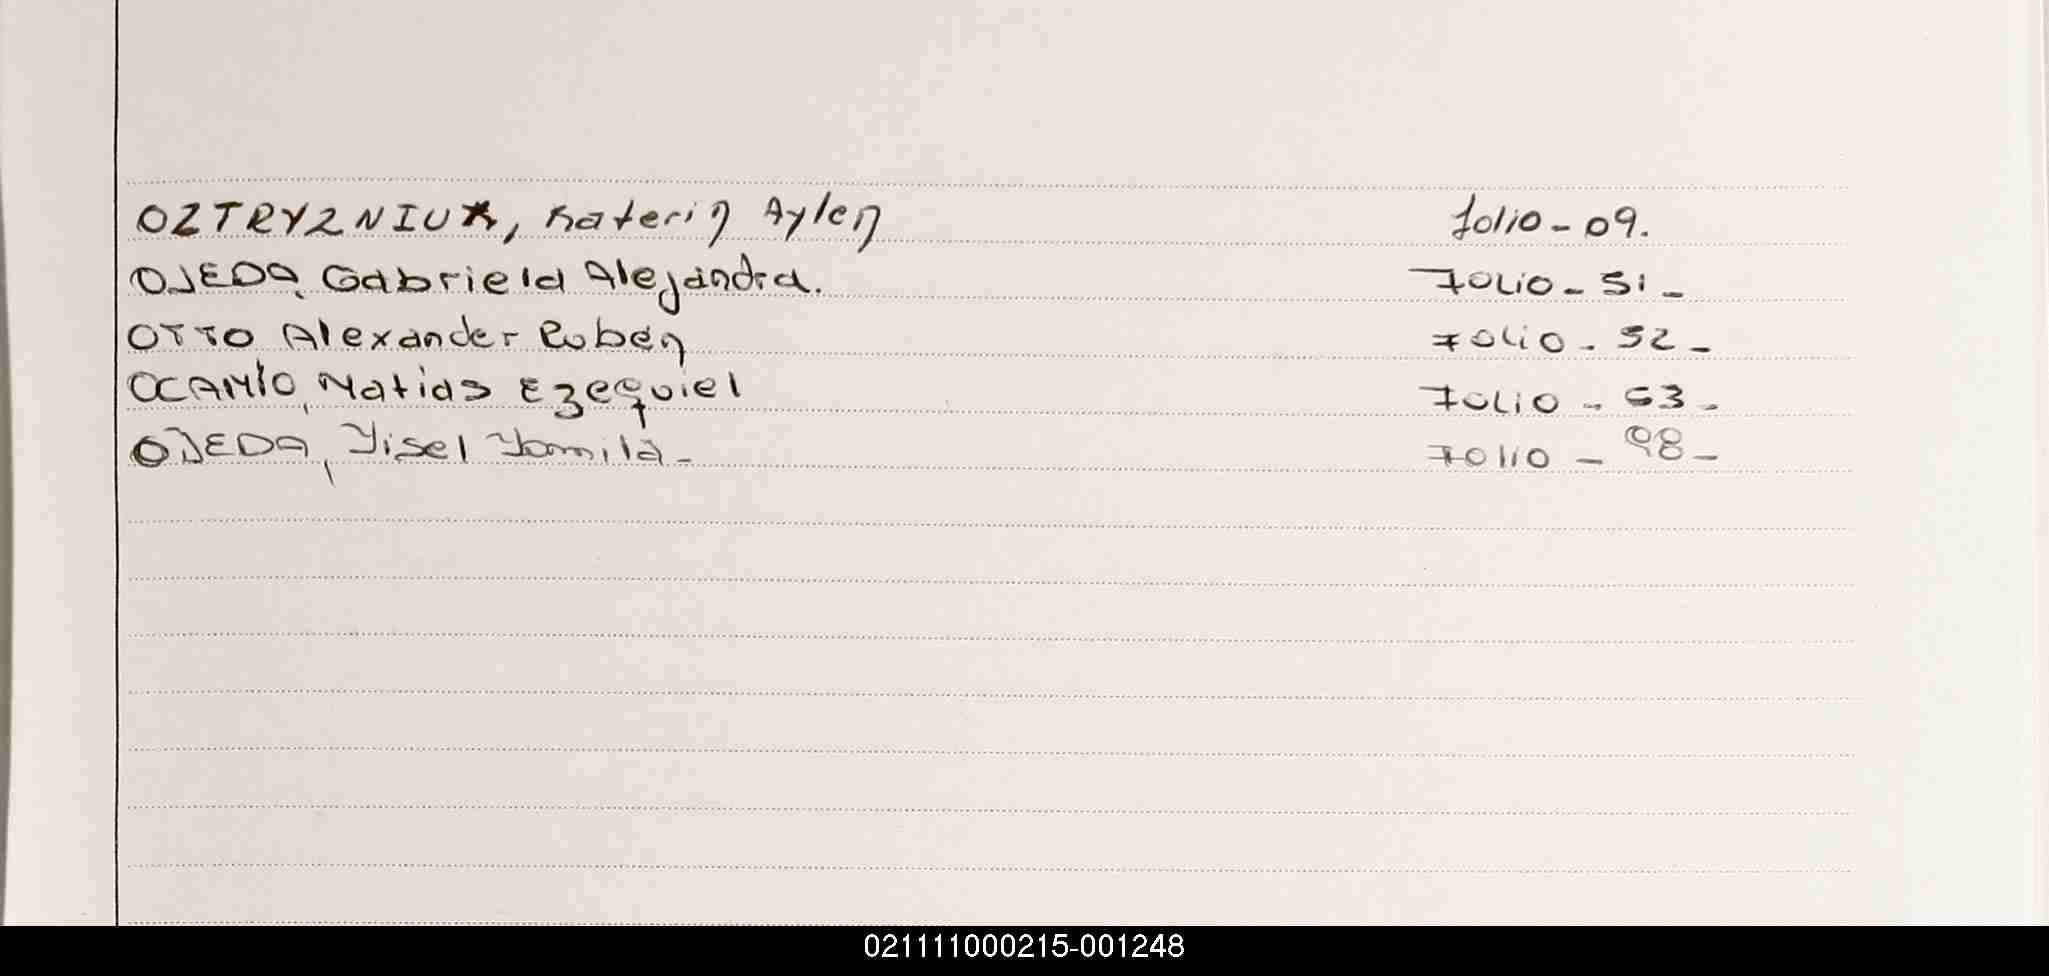 OZTRYZNIUK, Katerin Aylen folio - 09.
OJEDA, Gabriela Alejandra. FOLIO - 51 -
OTTO Alexander Ruben FOLIO - 52 -
OCAMPO, Matias Ezequiel FOLIO - 63 -
OJEDA, Yisel Yamila - FOlIO - 98 -
021111000215-001248